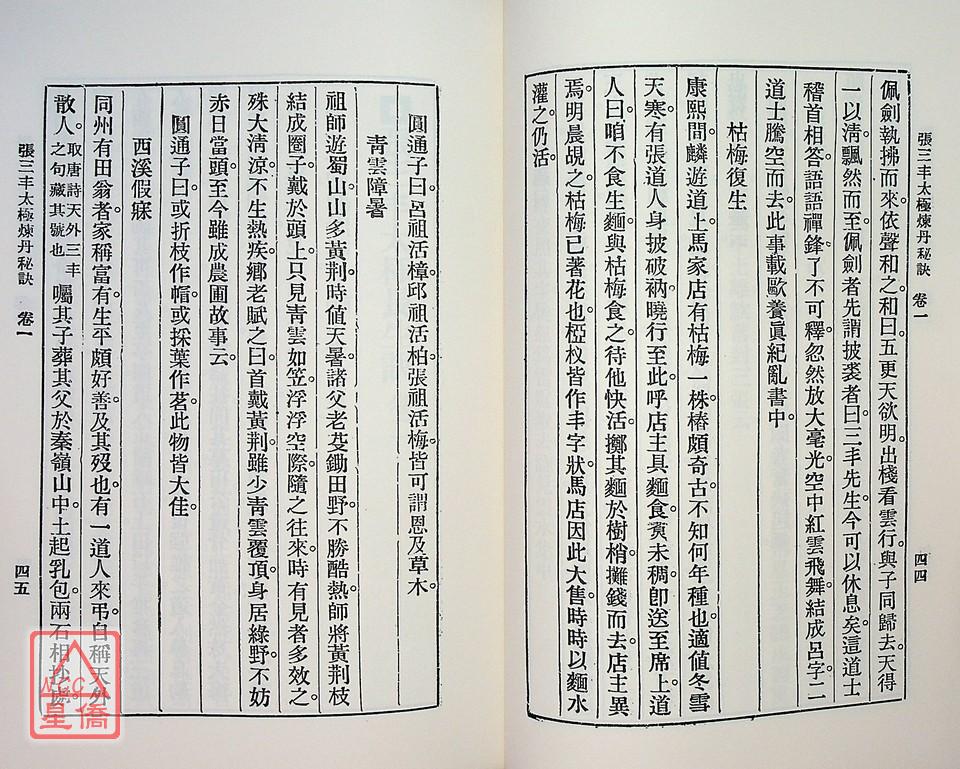 張三丰太極煉丹秘訣 卷一 四四
佩劍執拂而來。依聲和之。和曰。五更天欲明。出棧看雲行。與子同歸去。天得
一以清。飄然而至。佩劍者先謂披裘者曰。三丰先生。今可以休息矣。這道士
稽首相答。語語禪鋒。了不可釋。忽然放大毫光。空中紅雲飛舞。結成呂字。二
道士騰空而去。此事載歐養眞紀亂書中。
枯梅復生
康熙間。麟遊道上馬家店有枯梅一株。樁頗奇古。不知何年種也。適値冬雪
天寒。有張道人身披破衲。曉行至此。呼店主具麵食。賓未稠。卽送至席上。道
人曰。咱不食生麵。與枯梅食之。待他快活。擲其麵於樹梢。攤錢而去。店主異
焉。明晨覘之。枯梅已著花也。椏杈皆作丰字狀。馬店因此大售。時時以麵水
灌之仍活。
圓通子曰。呂祖活樟。邱祖活柏。張祖活梅。皆可謂恩及草木。
青雲障暑
祖師遊蜀山。山多黃荆。時値天暑。諸父老芟鋤田野。不勝酷熱。師將黃荆枝
結成圈子。戴於頭上。只見青雲如笠。浮浮空際。隨之往來。時有見者多效之。
殊大清涼。不生熱疾。鄉老賦之曰。首戴黃荆雖少。青雲覆頂。身居綠野。不妨
赤日當頭。至今雖成農圃故事云。
圓通子曰。或折枝作帽。或採葉作茗。此物皆大佳。
西溪假寐
同州有田翁者。家稱富有。生平頗好善。及其歿也。有一道人來弔。自稱天外
散人。取唐詩天外三丰之句藏其號也 囑其子葬其父於秦嶺山中。土起乳包。兩石相抄處。
張三丰太極煉丹秘訣 卷一 四五
NCC
星僑